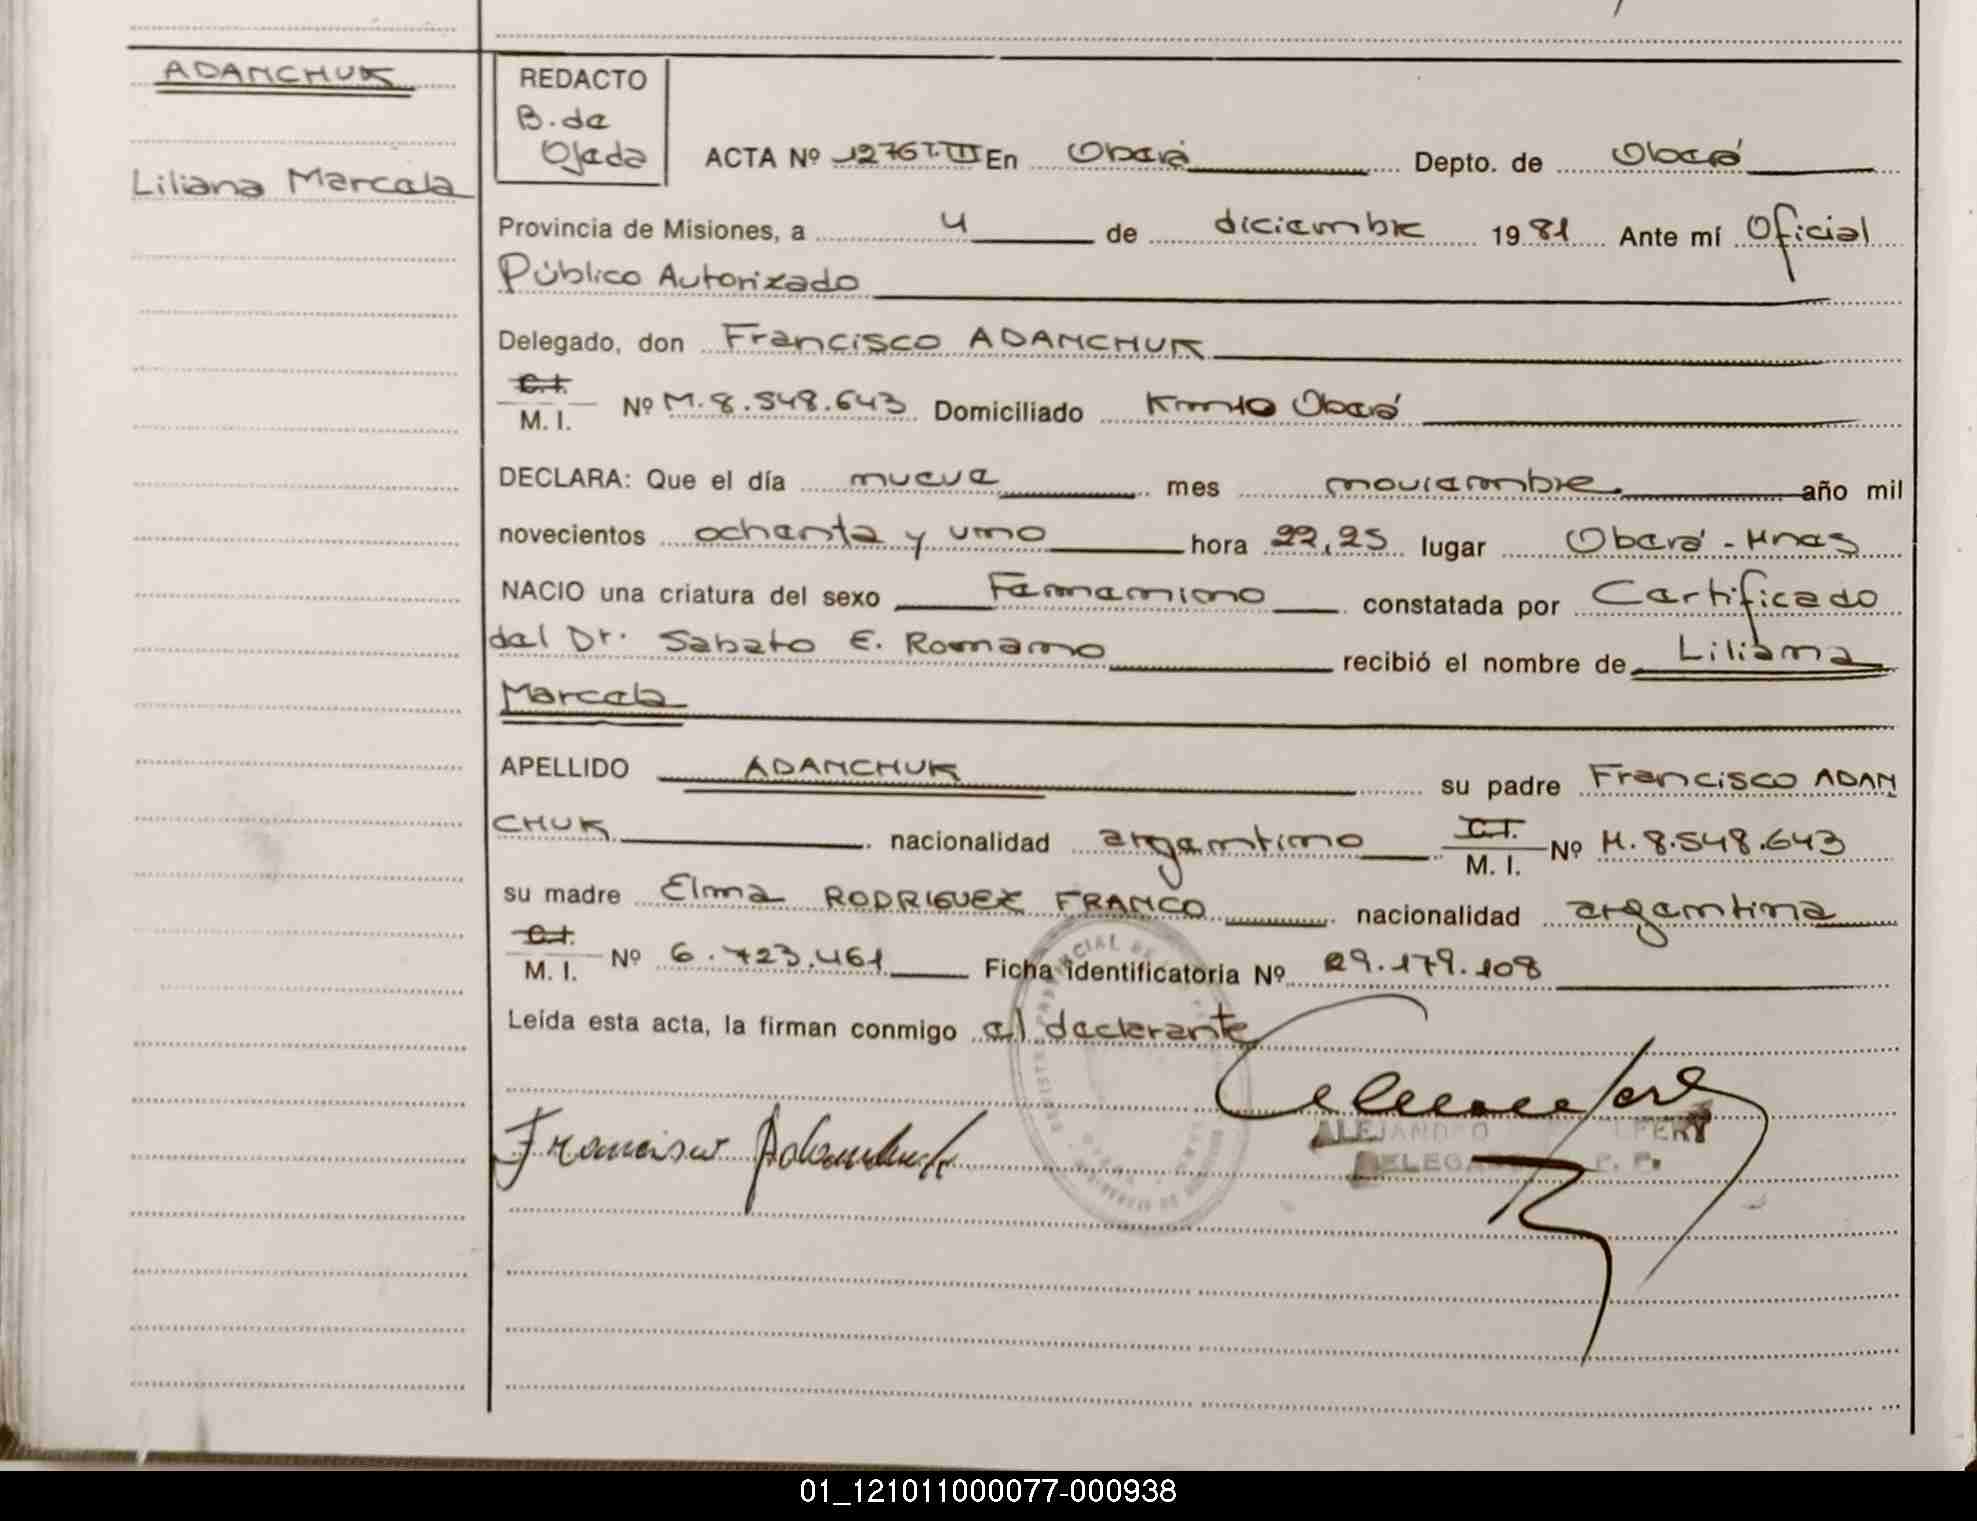 ADAMCHUK
Liliana Marcela
REDACTO
B. de
Ojeda
ACTA Nº 1276 T. III En Oberá Depto. de Oberá
Provincia de Misiones, a 4 de diciembre 1981 Ante mí Oficial
Público Autorizado
Delegado, don Francisco ADAMCHUK
C.I.
M. I. Nº M. 8.548.643 Domiciliado Km 10 Oberá
DECLARA: Que el día nueve mes noviembre año mil
novecientos ochenta y uno hora 22,25 lugar Oberá - Mnes
NACIO una criatura del sexo Femenino constatada por Certificado
del Dr. Sabato E. Romano recibió el nombre de Liliana
Marcela
APELLIDO ADAMCHUK su padre Francisco ADAM
CHUK nacionalidad argentino C.I. M. I. Nº M. 8.548.643
su madre Elma RODRIGUEZ FRANCO nacionalidad argentina
C.I.
M. I. Nº 6.723.461 Ficha identificatoria Nº 29.179.108
Leída esta acta, la firman conmigo el declarante
Francisco Adamchuk
ALEJANDRO
DELEGADO
01_121011000077-000938